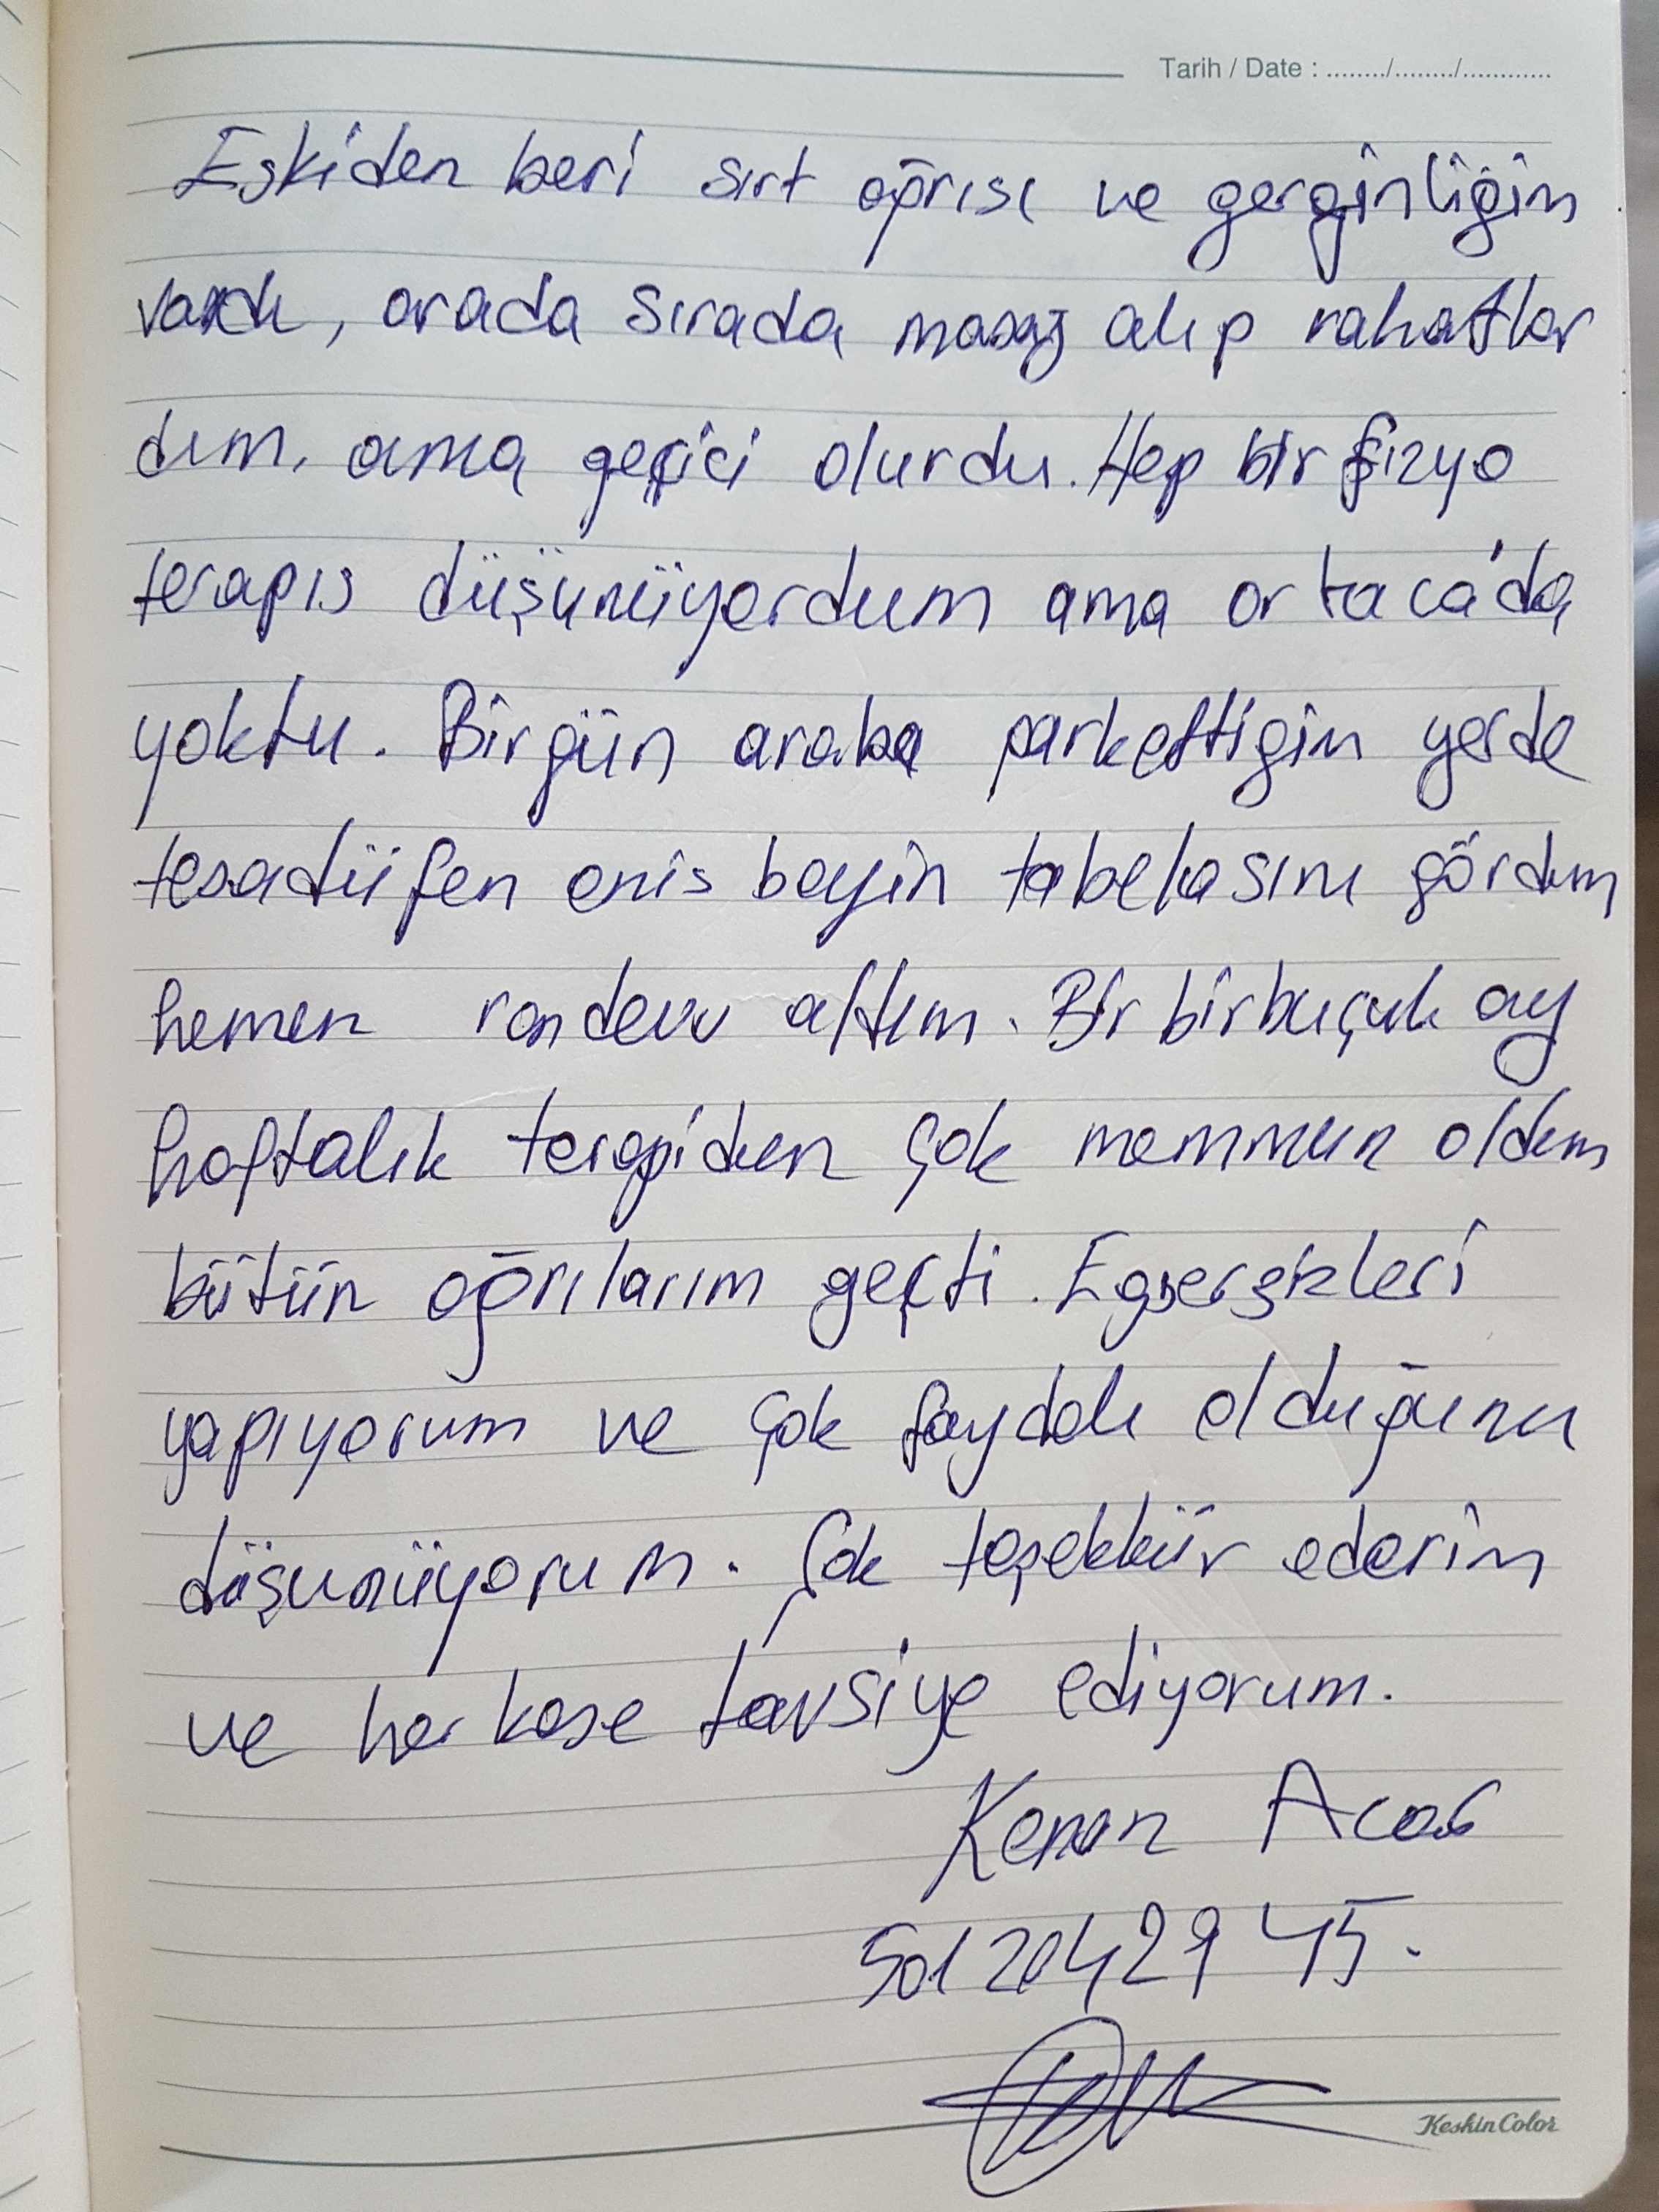 Tarih / Date : ......../......../............
Eskiden beri sırt ağrısı ve gerginliğim
vardı, arada sırada masaj alıp rahatlar
dım, ama geçici olurdu. Hep bir fizyo
terapis düşünüyordum ama ortaca'da
yoktu. Birgün araba parkettiğim yerde
tesadüfen enis beyin tabelasını gördüm
hemen randevu aldım. Bir birbuçuk ay
haftalık terapiden çok memnun oldum
bütün ağrılarım geçti. Egsersizleri
yapıyorum ve çok faydalı olduğunu
düşünüyorum. Çok teşekkür ederim
ve herkese tavsiye ediyorum.
Kenan
KeskinColor